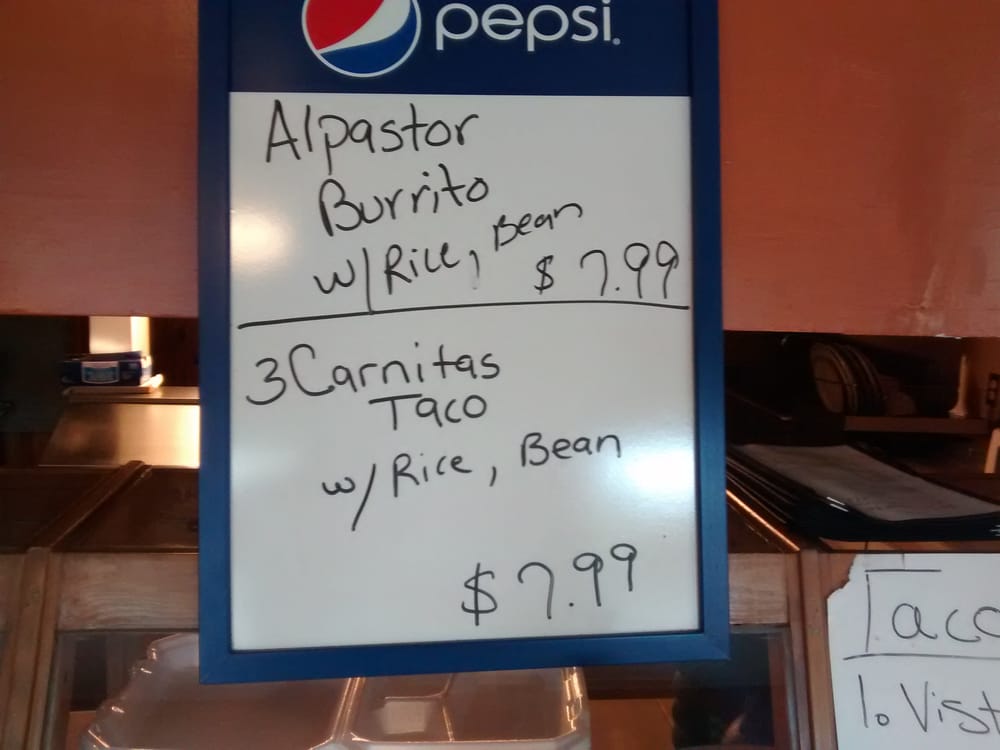 pepsi.
Alpastor
Burrito
w/Rice, Bean
$ 7.99
3 Carnitas
Taco
w/Rice, Bean
$7.99
Taco
1. Vist